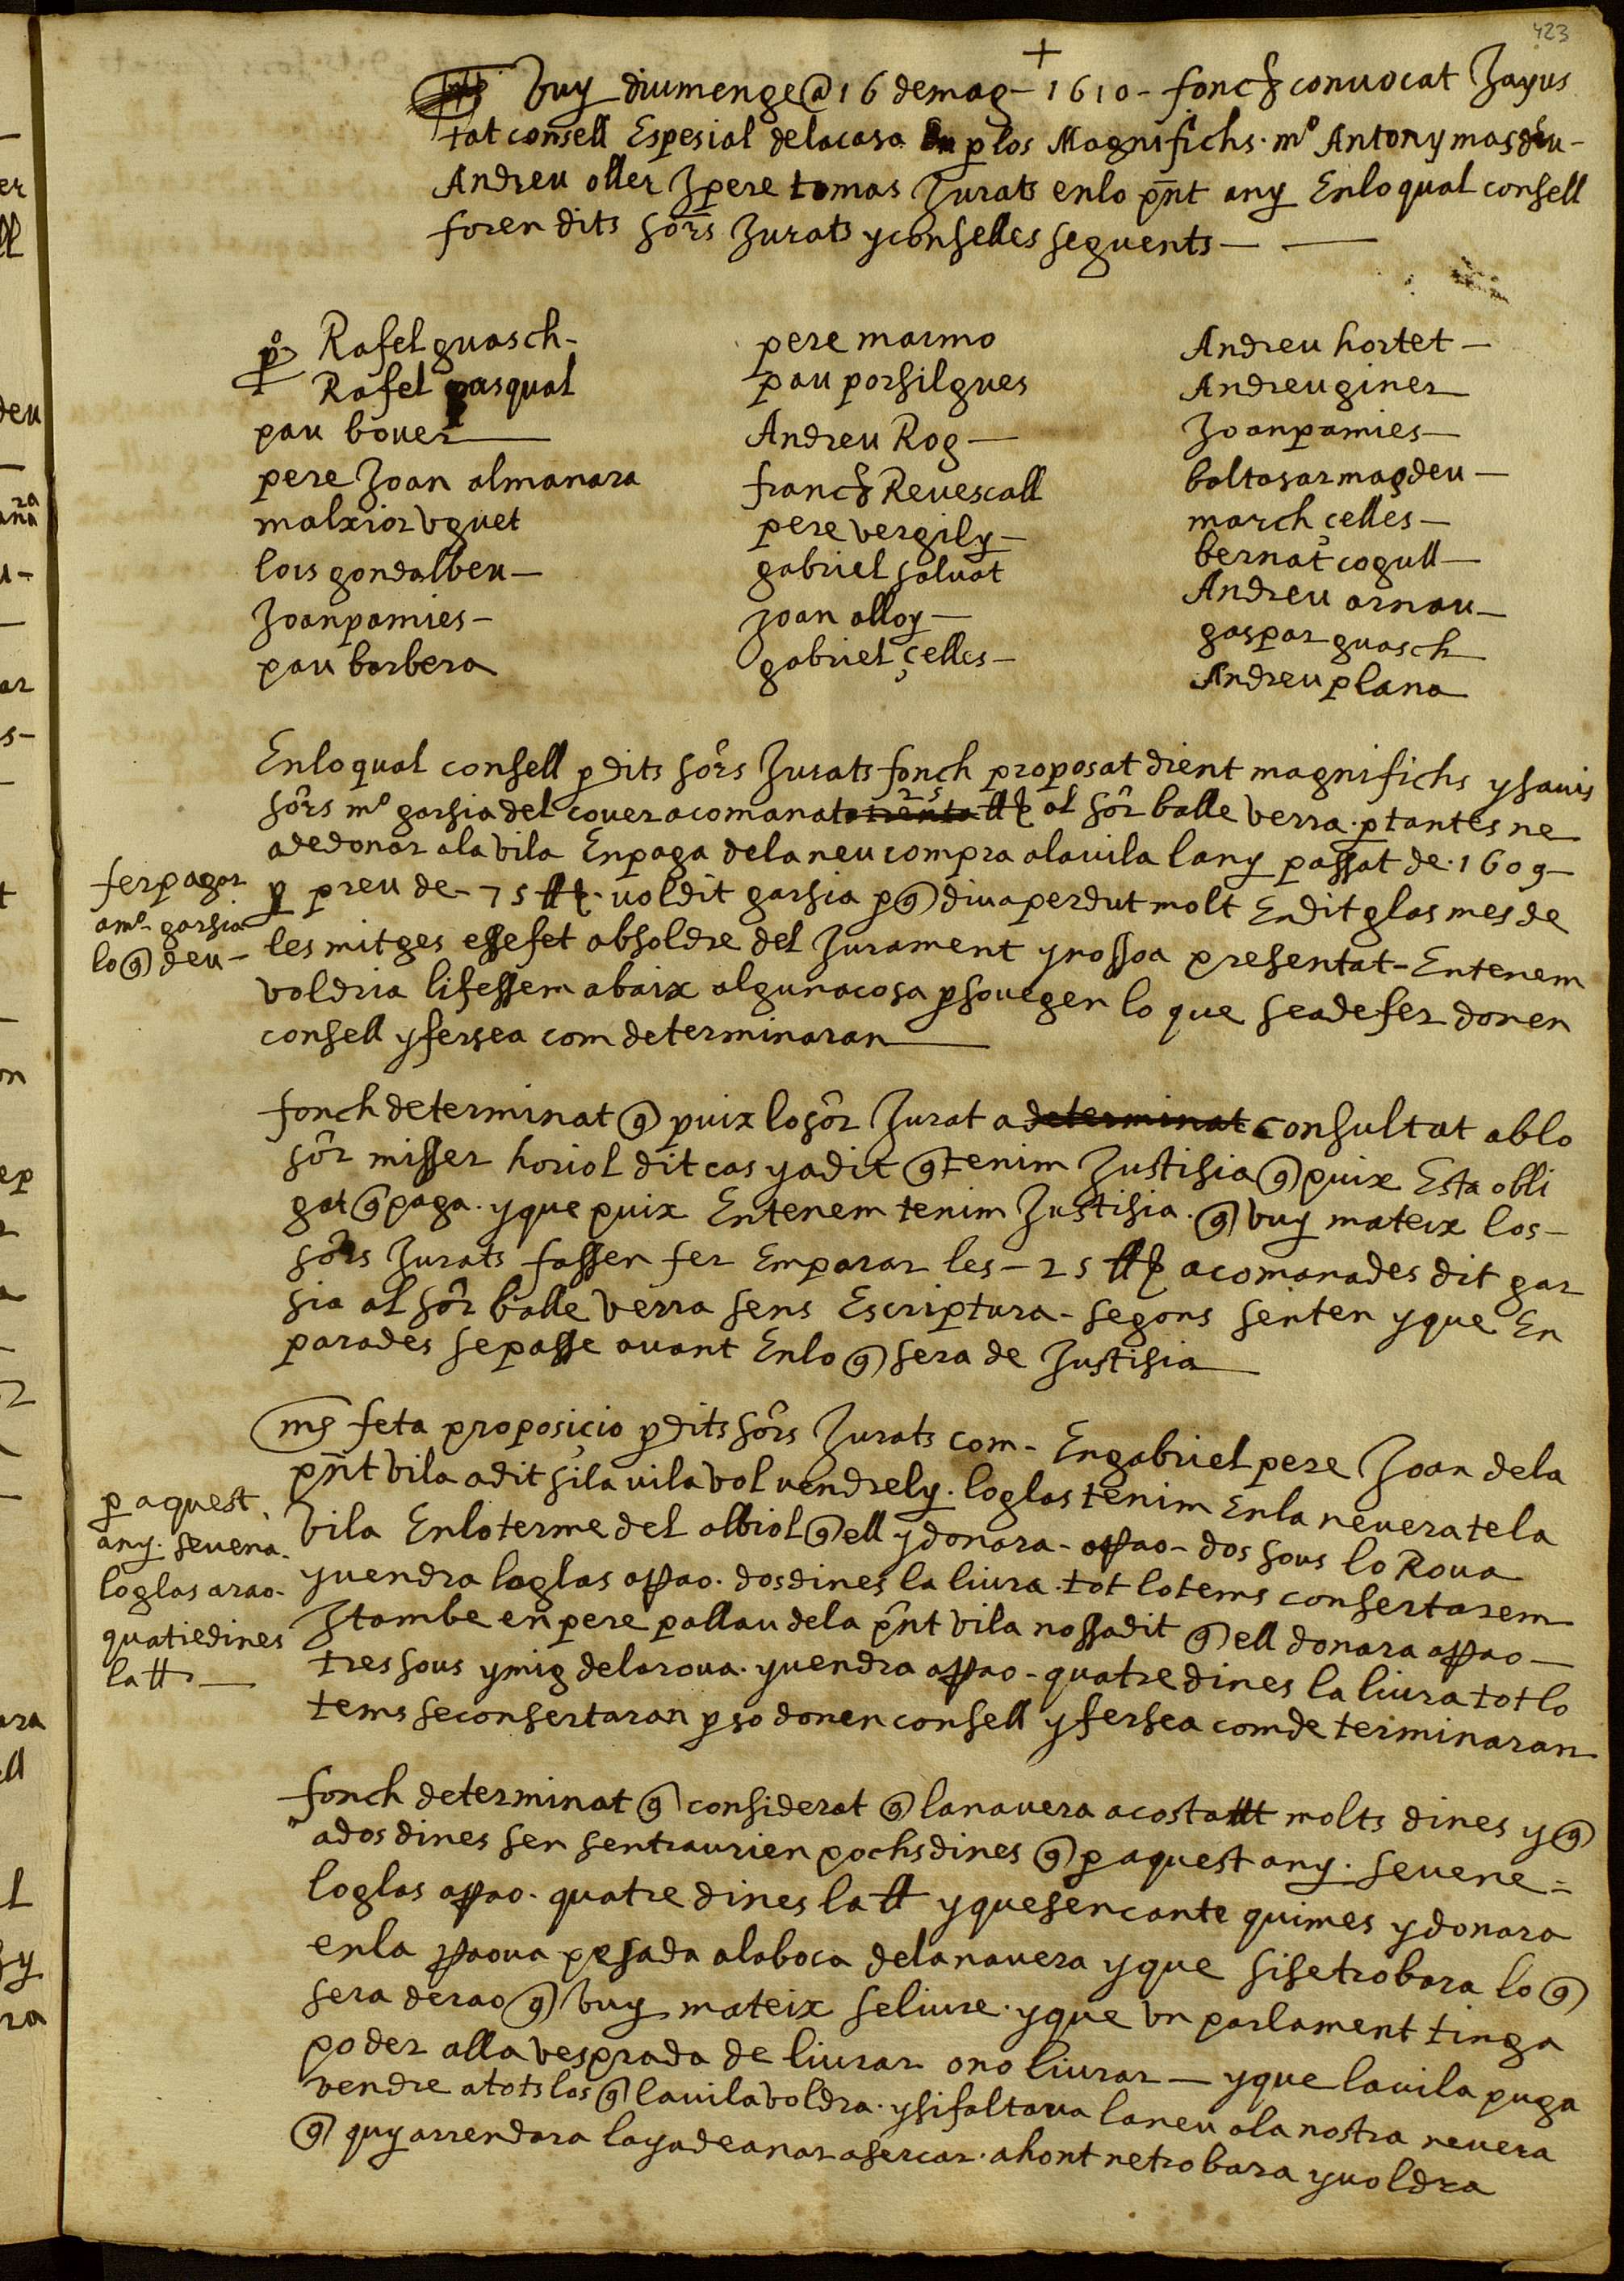 423
+
Vuy diumenge @ 16 de mag - 1610 - fonch convocat Jayus
tat consell Espesial dela casa p los Magnifichs mº Antony masdeu -
Andreu oller J pere tomas Jurats en lo pnt any En lo qual consell
foren dits sors Jurats y conselles seguents —
pº Rafel guasch -
Rafel pasqual
pau bover
pere Joan almanara
malxior vguet
lois gondalbeu -
Joan pamies -
pau barbera
pere marmo
pau porsilgues
Andreu Rog -
franch Revescall
pere vergily -
gabriel salvat
joan alloy -
gabriel çelles -
Andreu hortet -
Andreu giner
Joan pamies -
baltasar magdeu -
march çelles -
bernat cogull -
Andreu arnau -
gaspar guasch
Andreu plana
En lo qual consell p dits sors Jurats fonch proposat dient magnifichs y savis
sors mº garsia del cover acomanat a trenta 25 ll al sor balle verra p tant es ne
a de donar a la vila En paga de la neu compra a la vila lany passat de 1609 -
p preu de - 75 ll vol dit garsia p q diu a perdut molt En dit glas mes de
les mitges esse fet absoldre del Jurament y nossoa presentat - Entenem
voldria li fessem abaix alguna cosa p so vegen lo que sea de fer donen
consell y fersea com determinaran
fer pagar
a mº garsia
lo q deu -
fonch determinat q puix lo sor Jurat a determinat consultat ab lo
sor misser horiol dit cas y a dit q tenim Justisia q puix Esta obli
gat q paga y que puix Entenem tenim Justisia q vuy mateix los -
sors Jurats fassen fer Emparar les - 25 ll acomanades dit gar
sia al sor balle verra sens Escriptura - segons senten y que En
parades se passe avant En lo q sera de Justisia
ms feta proposicio p dits sors Jurats com - En gabriel pere Joan de la
pnt vila a dit si la vila vol vendrely lo glas tenim En la nevera te la
vila En lo terme del albiol q ell y donara - arrao - dos sous lo Rova
y vendra lo glas arrao dos dines la liura tot lo tems consertarem
J tambe en pere pallau de la pnt vila nossadit q ell donara arrao -
tres sous y mig dela rova y vendra arrao - quatre dines la liura tot lo
tems se consertaran p so donen consell y fersea com determinaran
p aquest
any. se vena
lo glas arao -
quatre dines
la ll -
fonch determinat q considerat q la navera a costat molts dines y q
a dos dines sen sentraurien pochs dines q p aquest any. se vene =
lo glas arrao. quatre dines la ll y que sen cante qui mes y donara
en la rraova pesada a la boca de la navera y que si se trobara lo q
sera de rao q vuy mateix se liure y que vn parlament tinga
poder alla vesprada de liurar o no liurar — y que la vila puga
vendre a tots los q la vila voldra y si faltava la neu a la nostra nevera
q quy arrendara laya de anar a sercar ahont ne trobara y voldra